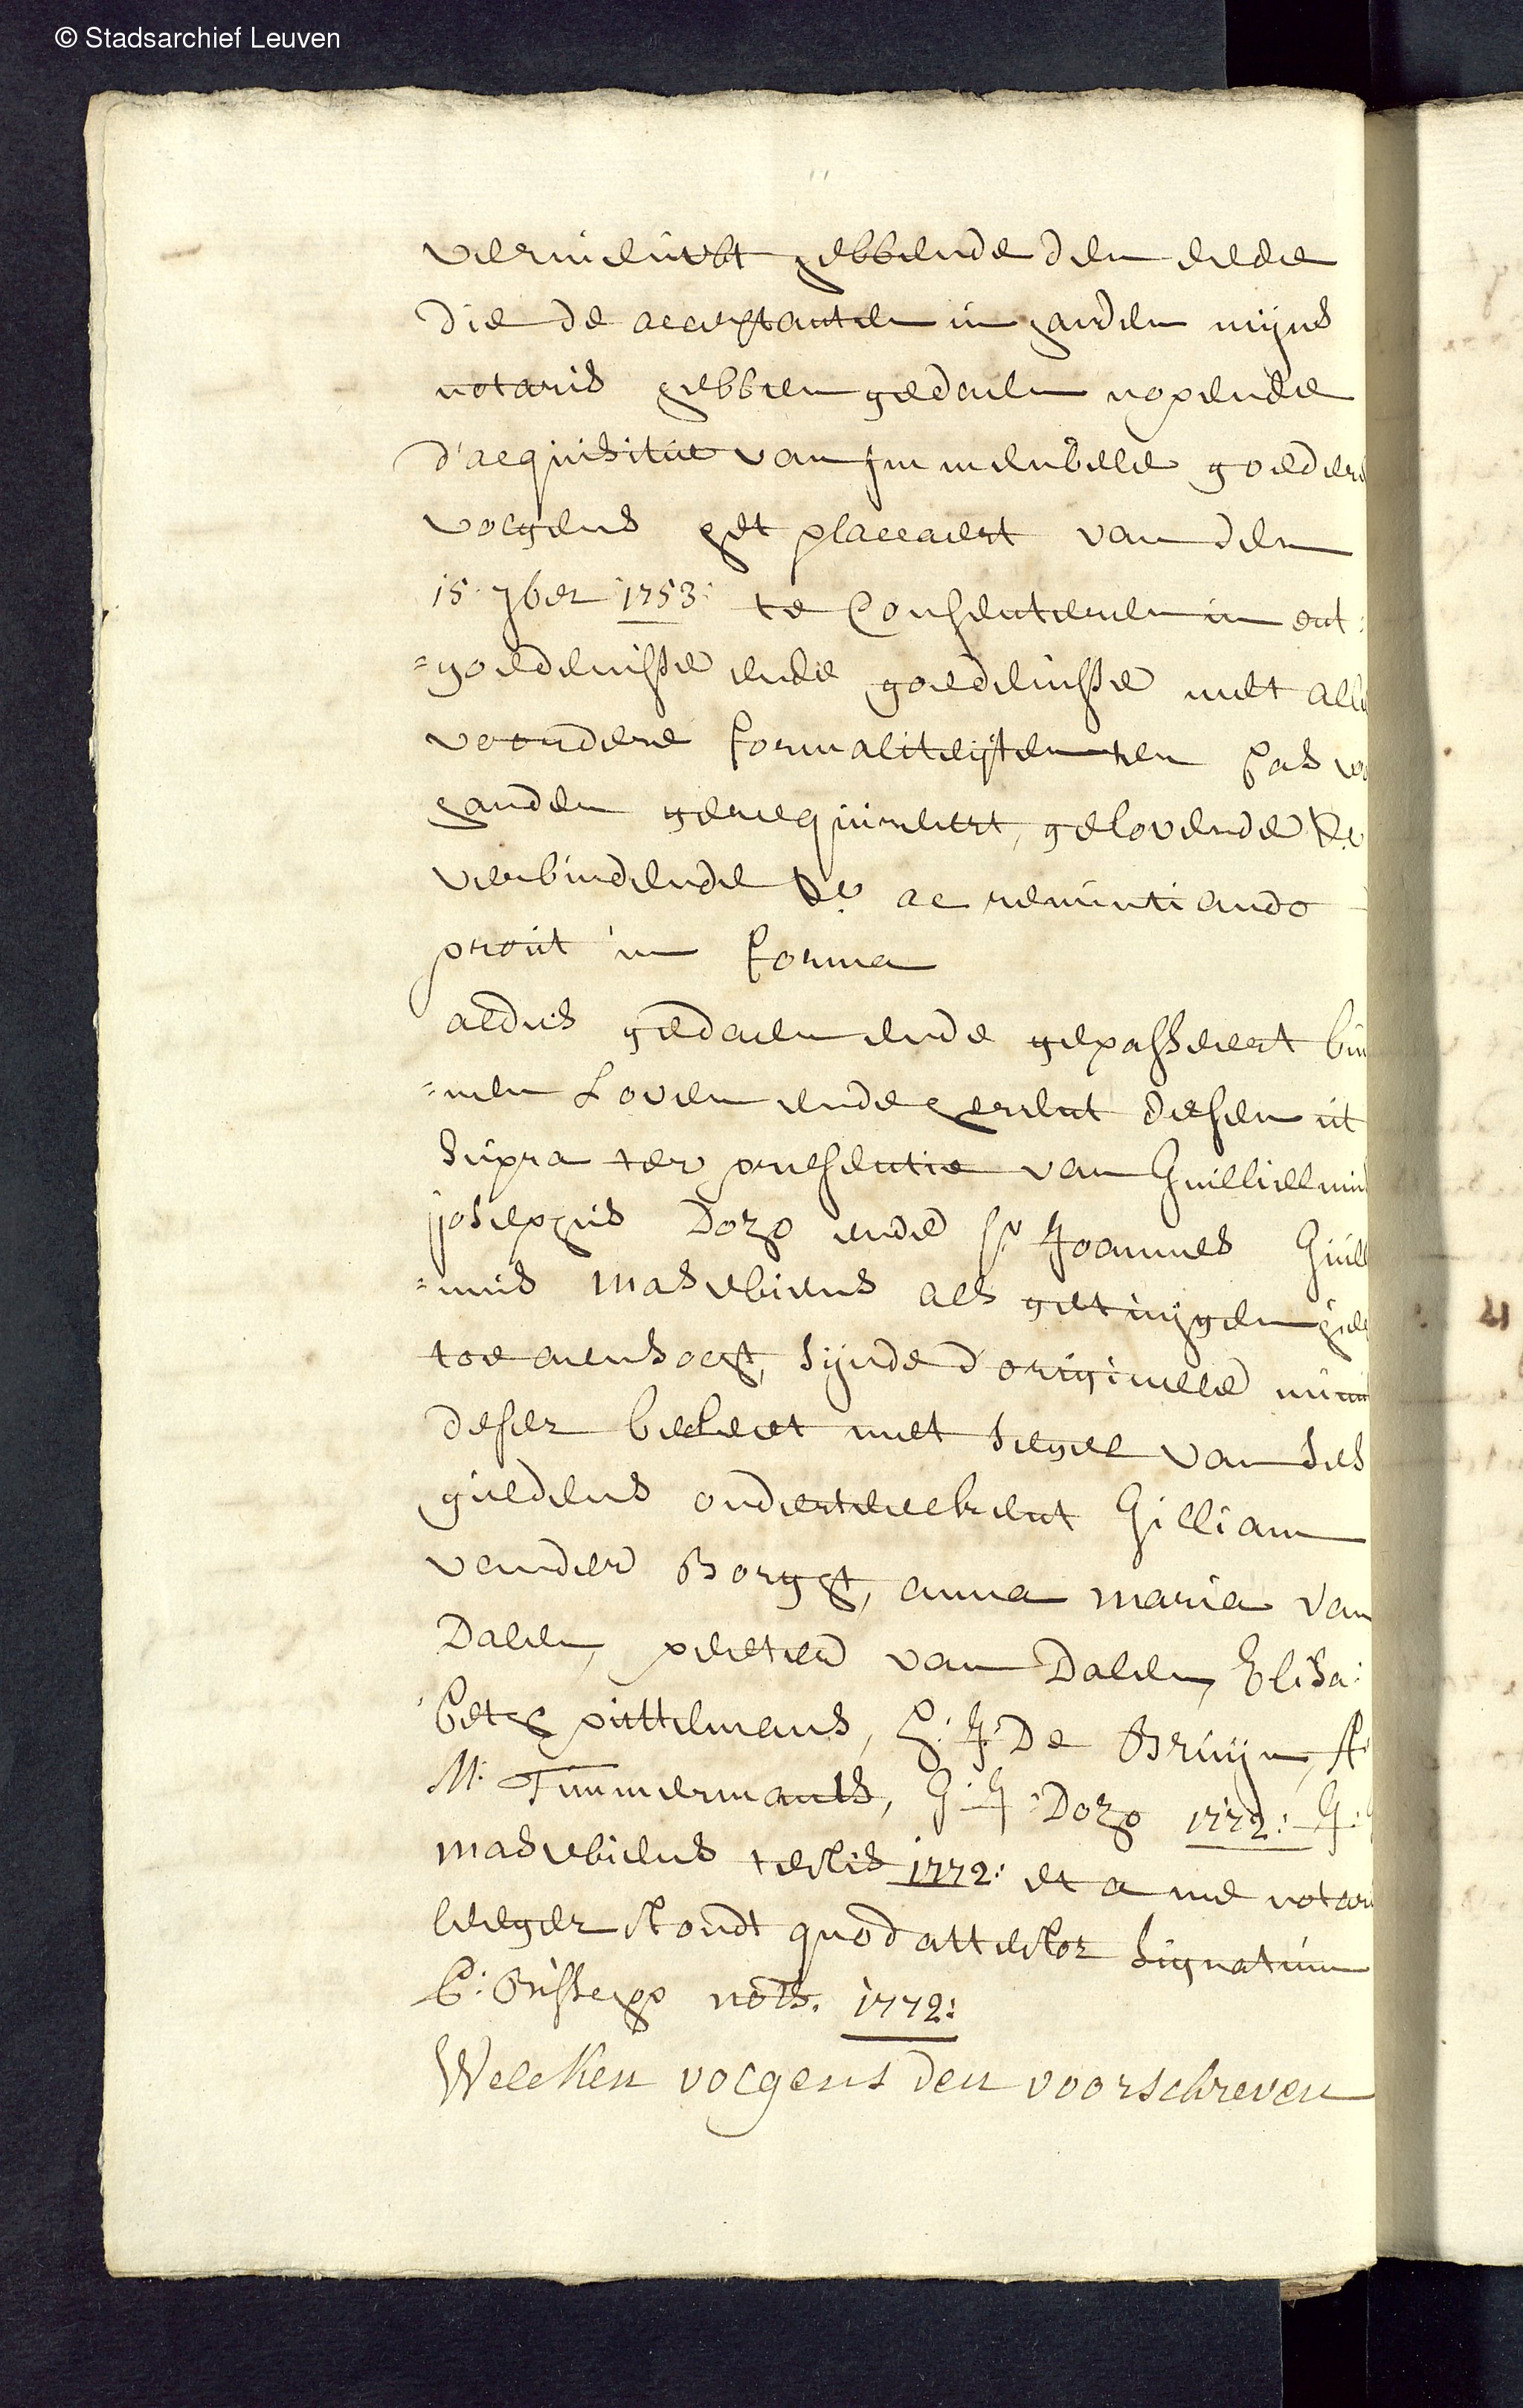 © Stadsarchief Leuven
vernieuwt hebbende den eede
die de acceptanten in handen mijns
notaris hebben gedaen nopende
d'acquisitie van Immeubele goedere
volgens het placcaert van den
15. 7ber 1753: te Consenteren in ont:
=goedenisse ende goedenisse met alle
voordere formaliteijten ten Cas va
handen gerequireert, gelovende &a
verbindende &a ac renuntiando
prout in forma
aldus gedaen ende gepasseert bin
=nen Loven ende herent desen ut
supra ter presentie van Guillielmus
josephus Dozo ende Sr Joannes Guill
=mus maswbiens als getuijgen hier
toe aensocht, sijnde d'origineele minu
deser becleet met segel van ses
guldens onderteeckent Gilliam
vander Borght, anna maria van
Dalen, peeter van Dalen, Elisa:
beth puttemans, H: J: De Bruijn, A:
M: Timmermants, G: J: Dozo 1772: J:
maswbiens testis 1772: et a me notari
leeger stondt quod attestor signatum
nots. 1772:
Welcken volgens den voorschreven